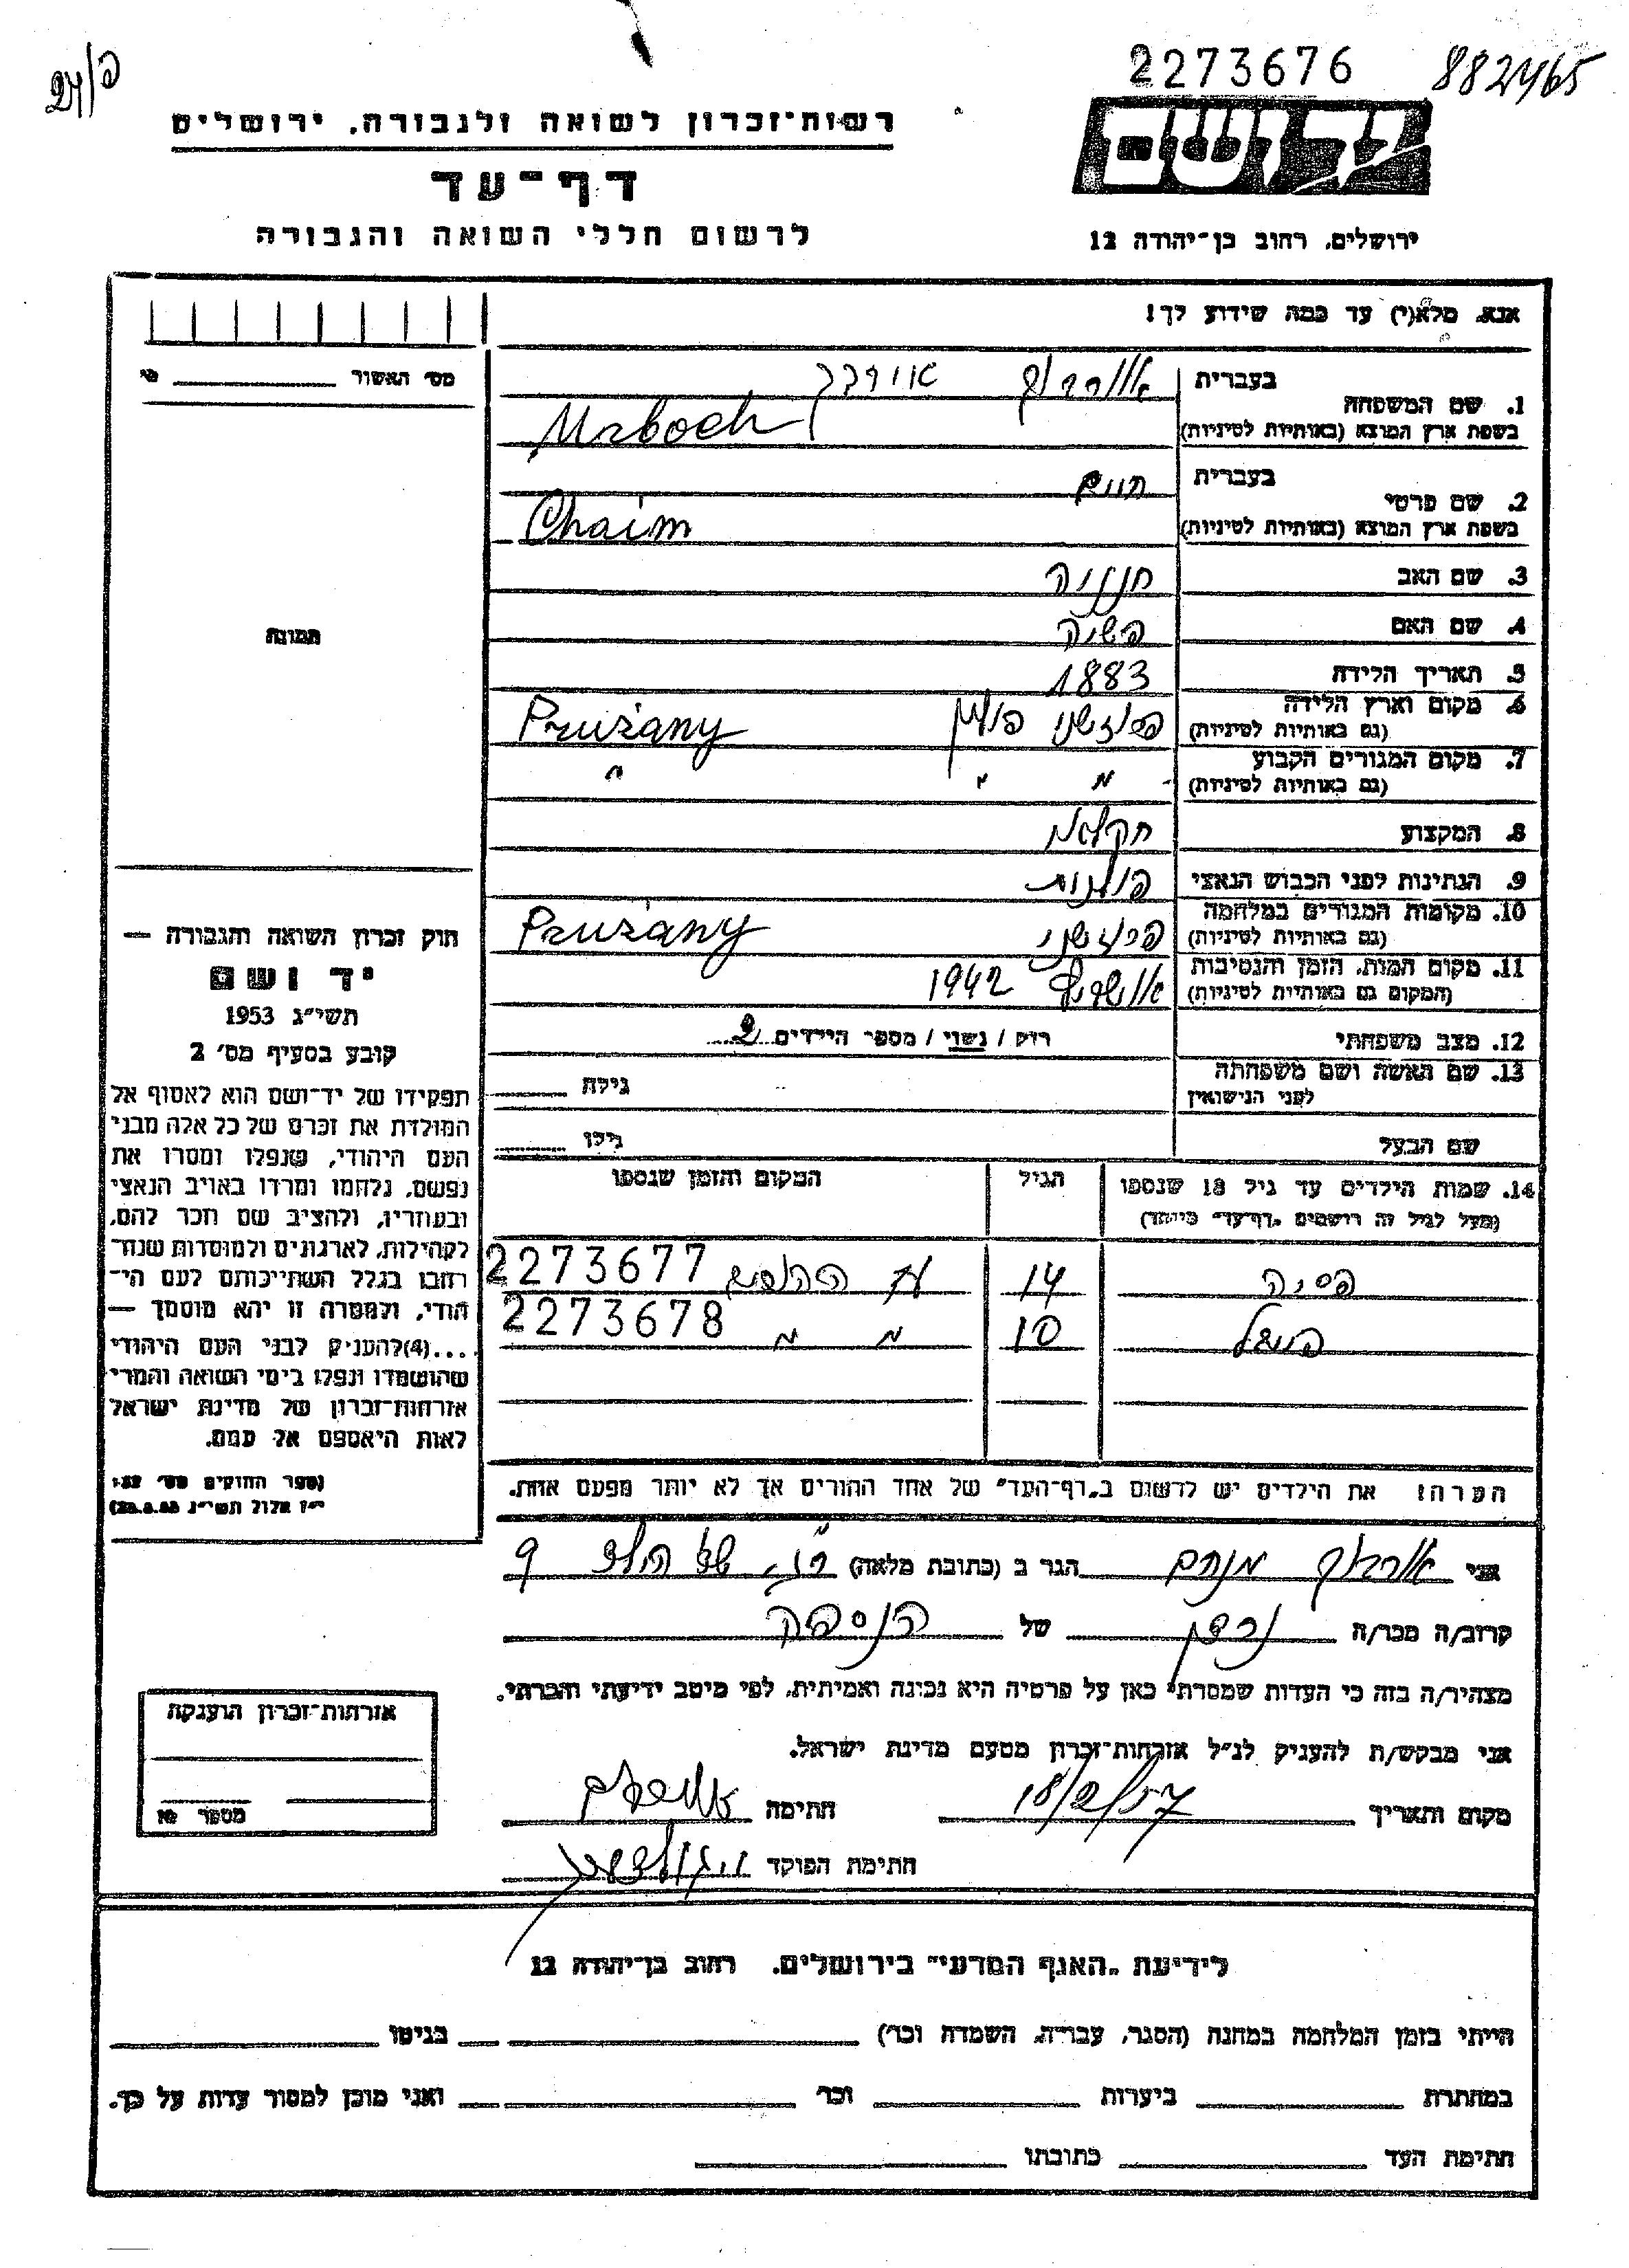 2273676 882465
רשות-זכרון לשואה ולגבורה, ירושלים
דף-עד
לרשום חללי השואה והגבורה
יד ושם
ירושלים, רחוב בן-יהודה 12
אנא, מלא(י) עד כמה שידוע לך!
מס׳ האשור
1. שם המשפחה
בעברית אורבוך אורבך
בשפת ארץ המוצא (באותיות לטיניות) Urboch
2. שם פרטי
בעברית חיים
בשפת ארץ המוצא (באותיות לטיניות) Chaim
3. שם האב חנניה
4. שם האם פשיה
תמונה
5. תאריך הלידה 1883
6. מקום וארץ הלידה פרוז'ני פולין Pružany
(גם באותיות לטיניות)
7. מקום המגורים הקבוע " " "
(גם באותיות לטיניות)
8. המקצוע חקלאי
9. הנתינות לפני הכבוש הנאצי פולנית
10. מקומות המגורים במלחמה Prużany
(גם באותיות לטיניות)
11. מקום המות, הזמן והנסיבות אושויץ 1942
(המקום גם באותיות לטיניות)
12. מצב משפחתי רווק / נשוי / מספר הילדים 2
13. שם האשה ושם משפחתה
לפני הנישואין גילה
שם הבעל גילו
14. שמות הילדים עד גיל 18 שנספו הגיל המקום והזמן שנספו
(מעל לגיל זה רושמים „דף-עד" מיוחד)
פסיה 14 עם ההורים 2273677
10 " " 2273678
הערה: את הילדים יש לרשום ב„דף-העד" של אחד ההורים אך לא יותר מפעם אחת.
חוק זכרון השואה והגבורה —
יד ושם
תשי״ג 1953
קובע בסעיף מס׳ 2
תפקידו של יד-ושם הוא לאסוף אל
המולדת את זכרם של כל אלה מבני
העם היהודי, שנפלו ומסרו את
נפשם, נלחמו ומרדו באויב הנאצי
ובעוזריו, ולהציב שם וזכר להם,
לקהילות, לארגונים ולמוסדות שנח־
רבו בגלל השתייכותם לעם הי־
הודי, ולמטרה זו יהא מוסמך —
...(4)להעניק לבני העם היהודי
שהושמדו ונפלו בימי השואה והמרי
אזרחות-זכרון של מדינת ישראל
לאות היאספם אל עמם.
(ספר החוקים מס׳ 132
י״ז אלול תשי״ג 28.8.53)
אני אורבוך מנחם הגר ב (כתובת מלאה)
קרוב/ה מכר/ה נכדו של הנספה
מצהיר/ה בזה כי העדות שמסרתי כאן על פרטיה היא נכונה ואמיתית, לפי מיטב ידיעתי והכרתי.
אני מבקש/ת להעניק לנ״ל אזרחות-זכרון מטעם מדינת ישראל.
מקום ותאריך 18/2/57 חתימה
חתימת הפוקד
אזרחות-זכרון הוענקה
מספר
לידיעת „האגף המדעי" בירושלים, רחוב בן-יהודה 12
הייתי בזמן המלחמה במחנה (הסגר, עבודה, השמדה וכו׳) בגיטו
במחתרת ביערות וכו׳ ואני מוכן למסור עדות על כך.
חתימת העד כתובתו